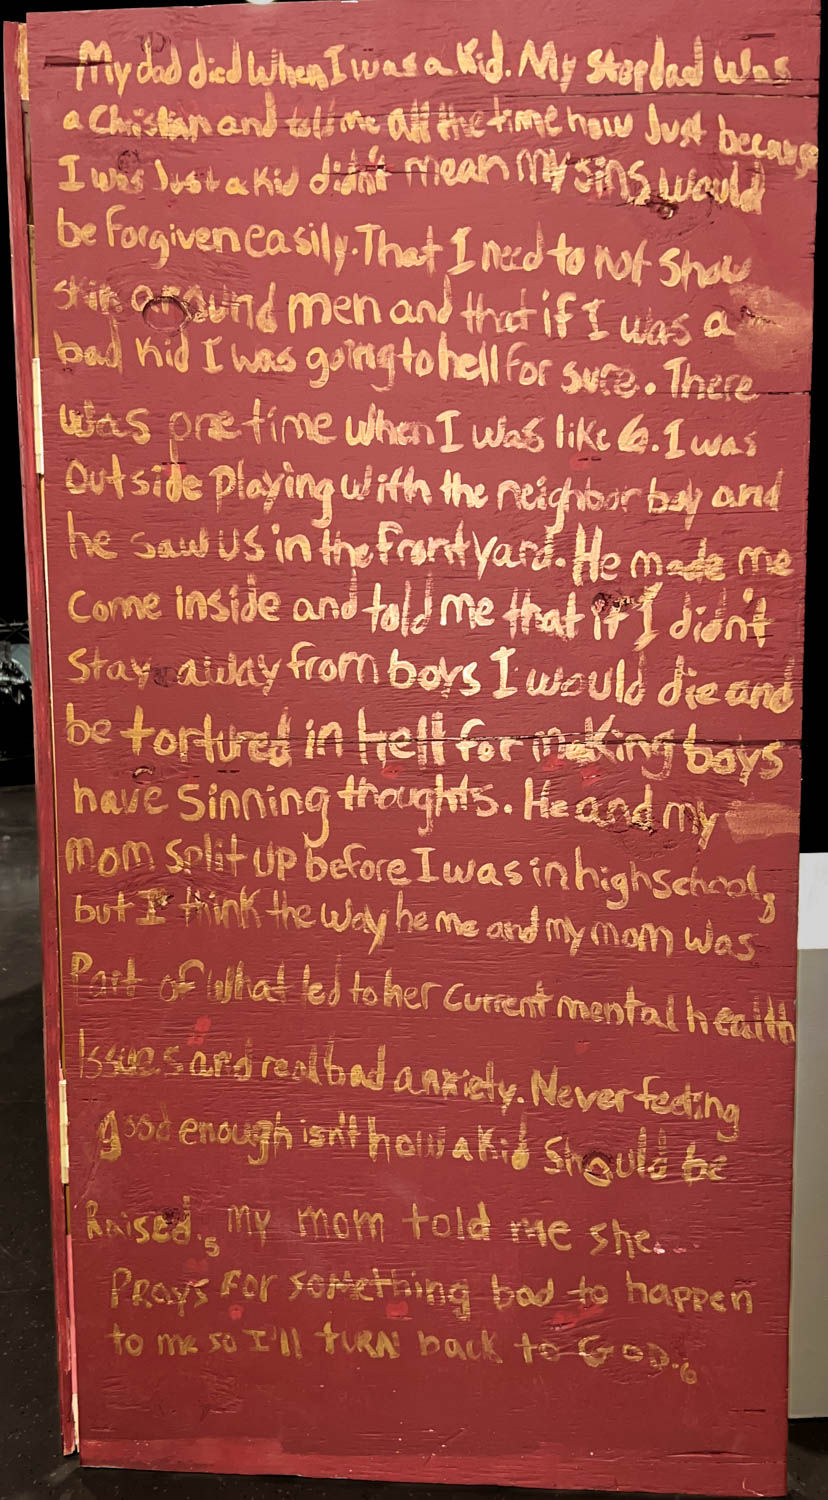 My dad died When I was a Kid. My Stepdad was
a Christian and told me all the time how Just because
I was Just a Kid didn't mean My sins would
be forgiven easily. That I need to not Show
skin around men and that if I was a
bad Kid I was going to hell for sure. There
was one time when I was like 6. I was
Outside Playing with the neighbor boy and
he saw us in the front yard. He made me
Come inside and told me that if I didn't
Stay away from boys I would die and
be tortured in hell for making boys
have Sinning thoughts. He and my
mom split up before I was in highschool,
but I think the way he me and my mom was
Part of what led to her current mental health
Issues and real bad anxiety. Never feeling
good enough isn't how a Kid Should be
Raised.5 My mom told me she...
PRays For something bad to happen
to me so I'll tuRN back to GOD.6